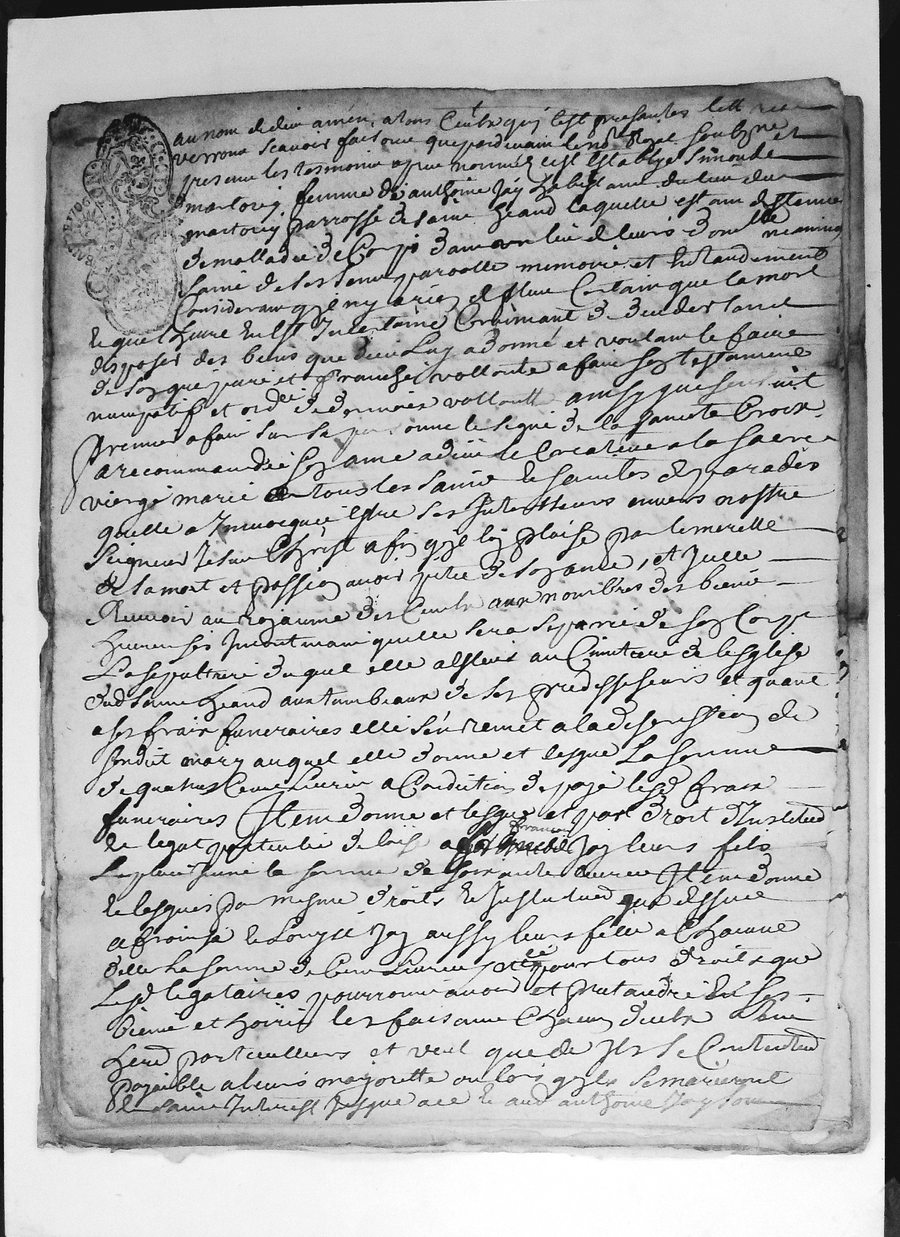 au nom de dieu amen a tous ceulx qui cest presantes lettres
verront scavoir faisons que pardevant le no.re royal soubzne et
presants les tesmoins apres nommes cest establye simonde
martouy femme de anthoine Jay habitans du lieu du
martouy parrosse de saint heand laquelle estans destenue
de malladie de corps dans un lict de leurs domille neanmoing
saine de ses sens parolle memoire et entandement
considerant qu'il ny a rien de plus certain que la mort
et que l'heure en est Incertaine craimant de deceder sans
disposer des biens que dieu luy a donné et voulant le faire
de son gre pure et franche vollonte a fait son testament
nuncupatif et ord.e de derniere vollonte ainsy que sensuit
Premier a fait sur sa personne le signe de la saincte Croix
a recommandée son ame a dieu le Createur a la sacree
vierge marie et tous les saints et saintes de paradis
quelle a Invocquée estre ses Intercesseurs envers nostre
Seigneur Jesus Christ afin qu'il luy plaise par le merite
de sa mort et passion avoir pitie de son ame, et Icelle
Recevoir au Royaume des Cieulx aux nombres des bien
heureuses Incontinant quelle sera separee de son Corps
La sepulture duquel elle a esleue au Cimetiere de lesglise
dud saint heand aux tombeaux de ses predessesseurs et quant
a ses fraix funeraires elle s'en remet a la discression de
sondit mary auquel elle donne et lesgue La somme
de quatre Cens Livres a Condition de payé lesd fraix
funeraires Item donne et lesgue et par droit d'Institud
de legat particulier delaisse a françois Jay leurs fils
La somme de soixante livres Item donne
et lesgues par mesme droits de Institud que dessus
a françoise et Louyse Jay aussy leurs filles a Chacune
delles La somme de Cens Livres pour tous droits que
Lesd legataires pourroint avoir et pretandre en ses
biens et hoirie les faisant Chacun d'eulx ses
hered particulliers et veut que de Ils se Contentent
payable a leurs mayorette ou lors qu'ils se marieront
et sans Interest jusque a ce et aud anthoine Jay son